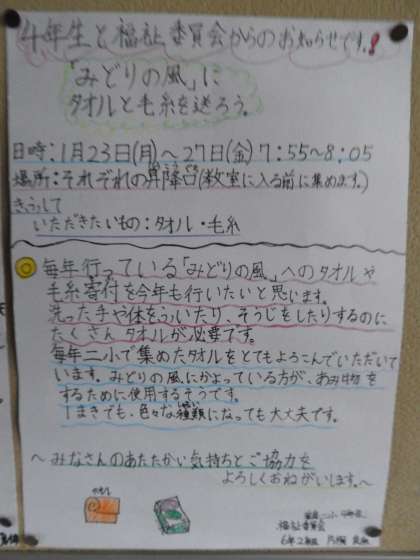 4年生と福祉委員会からのお知らせです!
「みどりの風」に
タオルと毛糸を送ろう。
日時:1月23日(月)~27日(金)7:55~8:05
場所:それぞれの昇降口(教室に入る前に集めます。)
きふして
いただきたいもの:タオル・毛糸
◎毎年行っている「みどりの風」へのタオルや
毛糸寄付を今年も行いたいと思います。
洗った手や体をふいたり、そうじをしたりするのに
たくさんタオルが必要です。
毎年二小で集めたタオルをとてもよろこんでいただいて
います。みどりの風にかよっている方が、あみ物を
するために使用するそうです。
1まきでも、色々な種類になっても大丈夫です。
~みなさんのあたたかい気持ちとご協力を
よろしくおねがいします。~
タオル
福祉委員会
6年2組